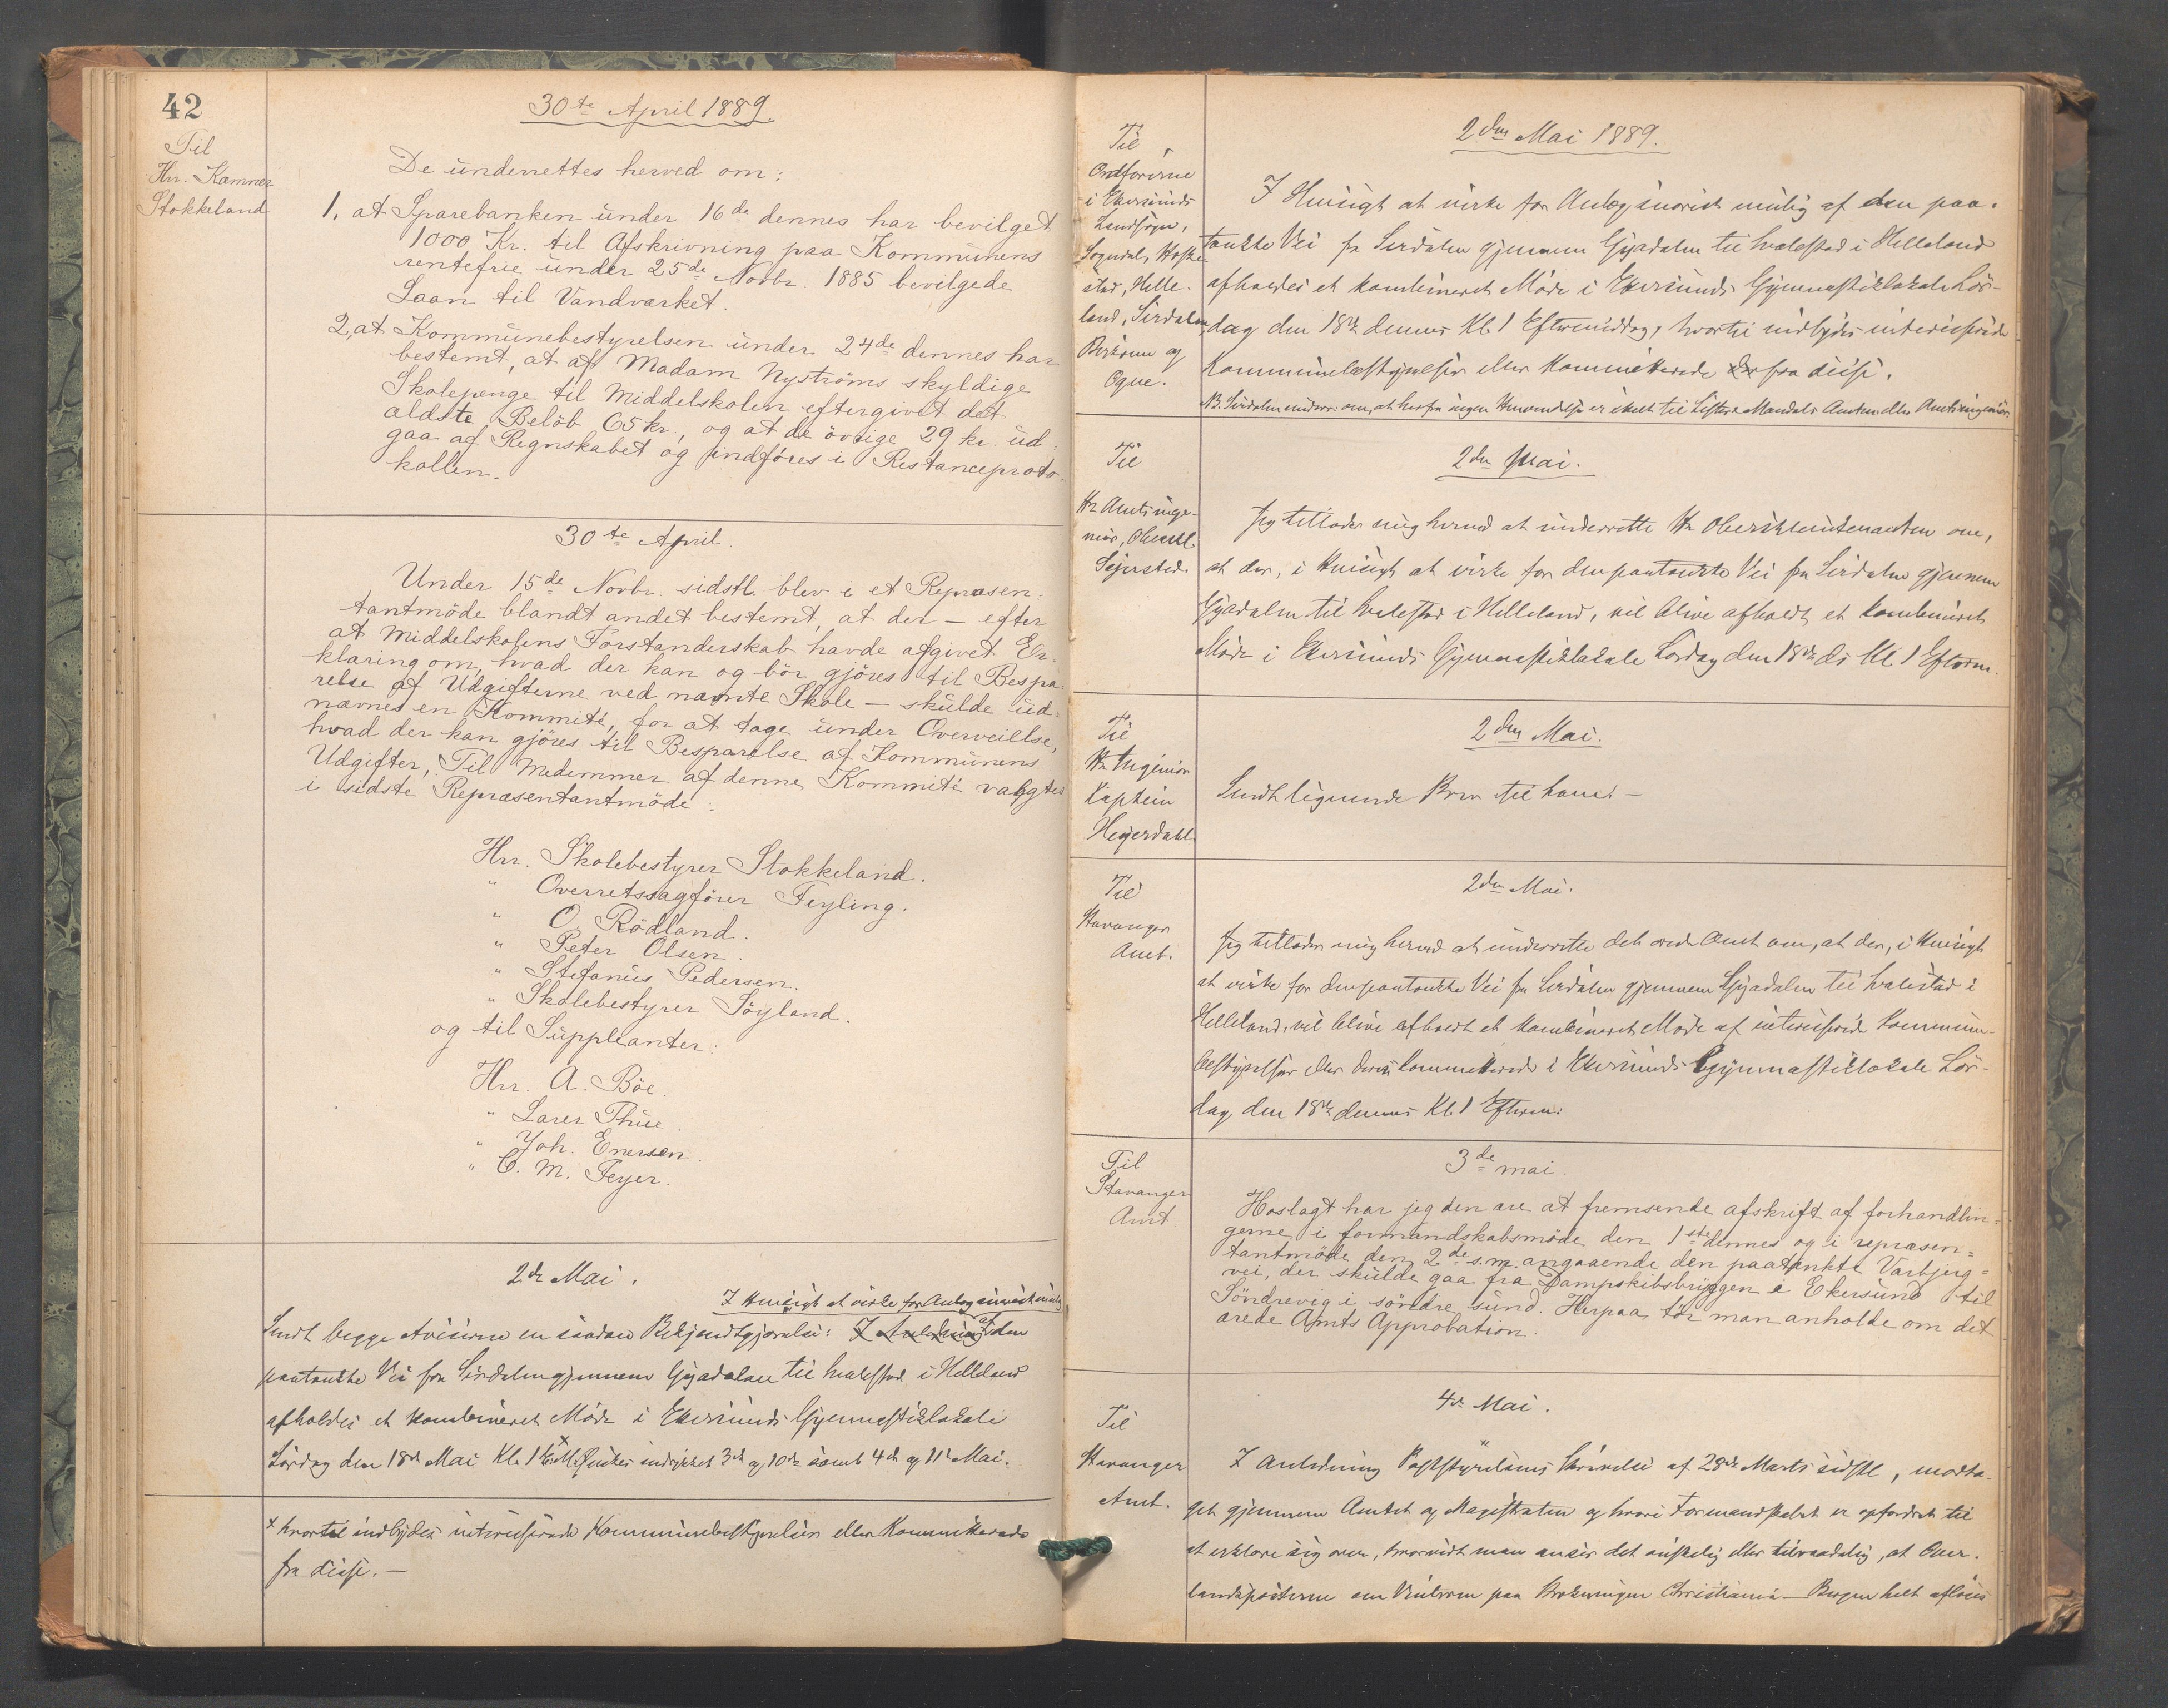 42
30te April 1889.
Til
Hrr. Kæmner
Stokkeland
De underrettes herved om:
1, at Sparebanken under 16de dennes har bevilget
1000 Kr. til Afskrivning paa Kommunens
rentefrie under 25de Novbr. 1885 bevilgede
Laan til Vandværket.
2, at Kommunebestyrelsen under 24de dennes har
bestemt, at af Madam Nyströms skyldige
Skolepenge til Middelskolen eftergivet det
ældste Belöb 65 kr., og at de övrige 29 kr. ud-
gaa af Regnskabet og indföres i Restanceproto-
kollen.
30te April.
Under 15de Novbr. sidstl. blev i et Repræsen-
tantmöde blandt andet bestemt, at der – efter
at Middelskolens Forstanderskab havde afgivet Er-
klæring om, hvad der kan og bör gjöres til Bespa-
relse af Udgifterne ved nævnte Skole – skulde ud-
nævnes en Kommité, for at tage under Overveielse,
hvad der kan gjöres til Besparelse af Kommunens
Udgifter. Til Medemmer af denne Kommité valgtes
i sidste Repræsentantmöde:
Hrr. Skolebestyrer Stokkeland.
" Overretssagförer Feyling.
" O. Rödland.
" Peter Olsen.
" Stefanus Pedersen.
" Skolebestyrer Söyland.
og til Suppleanter:
Hrr. A. Böe.
" Laver Thue.
" Joh. Enersen.
" C. M. Feyer.
2de Mai.
I Hensigt at virke for Anlæg snarest mulig
Sendt begge Aviserne en saadan Bekjendtgjørelse: I Anledning af den
paatænkte Vei fra Sirdalen gjennem Gyadalen til Hvalestad i Helleland
afholdes et kombineret Möde i Ekersunds Gymnastiklokale
Lördag den 18de Mai Kl. 1 E.M.x Ønskes indrykket 3de og 10de samt 4de og 11te Mai.
x hvortil indbydes interesserede Kommunebestyrelser eller Kommitterede
fra disse. –
2den Mai 1889.
Til
Ordførerne
i Ekersunds
Landsogn,
Sogndal, Heske-
stad, Helle-
land, Sirdalen,
Bjerkreim og
Ogne.
I Hensigt at virke for Anlæg snarest mulig af den paa-
tænkte Vei fra Sirdalen gjennem Gyadalen til Hvalestad i Helleland
afholdes et kombineret Möde i Ekersunds Gymnastiklokale Lör-
dag den 18de dennes Kl. 1 Eftermiddag, hvortil indbydes interesserede
Kommunebestyrelser eller Kommitterede fra disse.
NB. Sirdalen underr. om, at herfra ingen Henvendelse er skeet til Lister & Mandals Amt eller Amtsingeniør.
2den Mai.
Til
Hr Amtsinge-
niør, Oberstl.
Sejersted.
Jeg tillader mig herved at underrette Hr Oberstleutenanten om,
at der, i Hensigt at virke for den paatænkte Vei fra Sirdalen gjennem
Gyadalen til Hvalestad i Helleland, vil blive afholdt et kombineret
Möde i Ekersunds Gymnastiklokale Lördag den 18de ds Kl. 1 Efterm.
2den Mai.
Til
Hr Ingeniør
Kaptein
Heyerdahl.
Sendt lignende Brev til ham. –
2den Mai.
Til
Stavanger
Amt.
Jeg tillader mig herved at underrette det ærede Amt om, at der, i Hensigt
at virke for den paatænkte Vei fra Sirdalen gjennem Gyadalen til Hvalestad i
Helleland, vil blive afholdt et kombineret Möde af interesserede Kommune-
bestyrelser eller deres Kommitterede i Ekersunds Gymnastiklokale Lör-
dag den 18de dennes Kl. 1 Efterm.
3de mai.
Til
Stavanger
Amt
Hoslagt har jeg den ære at fremsende afskrift af forhandlin-
gerne i formandskabsmöde den 1ste dennes og i repræsen-
tantmöde den 2de s.m. angaaende den paatænkte Varbjerg-
vei, der skulde gaa fra Dampskibsbryggen i Ekersund til
Söndrevig i söndre sund. Herpaa tör man anholde om det
ærede Amts Approbation.
4de Mai.
Til
Stavanger
Amt.
I Anledning Poststyrelsens Skrivelse af 28de Marts sidstl, modta-
get gjennem Amtet og Magistraten og hvori Formandskabet er opfordret til
at erklære sig over, hvorvidt man anser det ønskelig eller tilraadelig, at Over-
landsposterne om Vinteren paa Strækningen Christiania – Bergen helt afløses